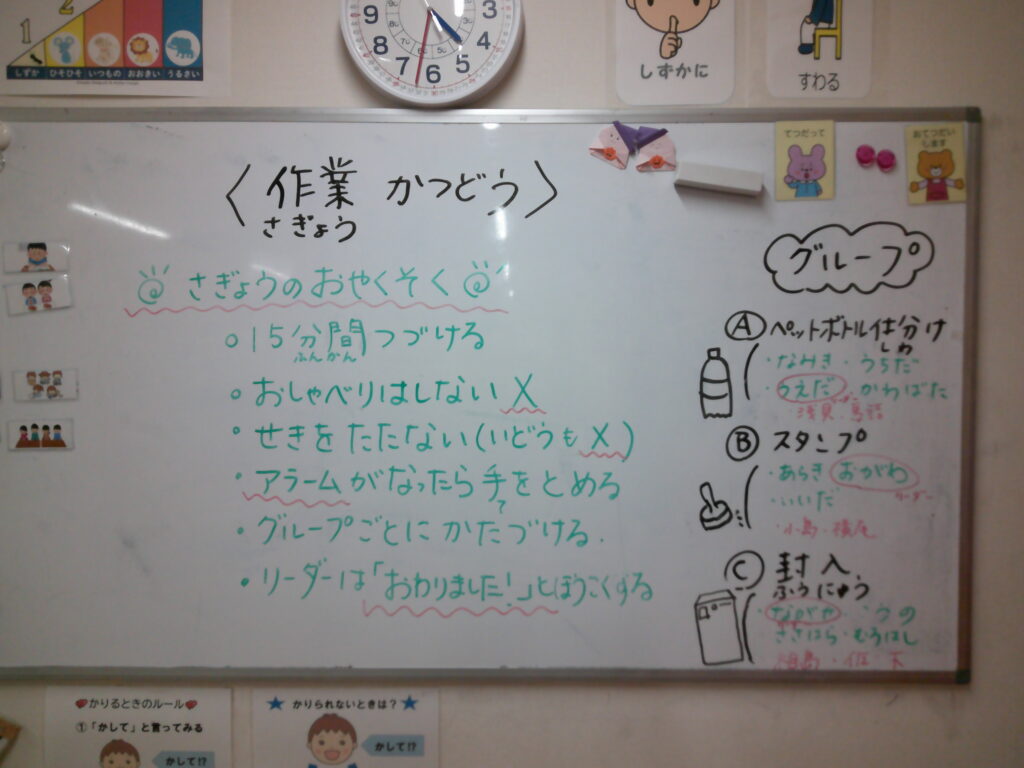 2
1
しずか ひそひそ いつもの おおきい うるさい
9 3
8 4
7 6 5
しずかに
すわる
てつだって
おてつだい
します
〈作業 かつどう〉
さぎょう
さぎょうのおやくそく
15分間つづける
ふんかん
・おしゃべりはしない X
・せきをたたない(いどうも X)
・アラームがなったら手をとめる
て
・グループごとにかたづける.
・リーダーは「おわりました!」とほうこくする
グループ
Ⓐ ペットボトル仕分け
しわ
・なみき・うちだ
・うえだ・かわばた
Ⓑ スタンプ
・あらき おがわ
リーダー
・いいだ
・小島・横尾
Ⓒ 封入
ふうにゅう
・ながや・うの
ささはら・むろはし
かりるときのルール
①「かして」と言ってみる
かして!?
★ かりられないときは? ★
かして!?